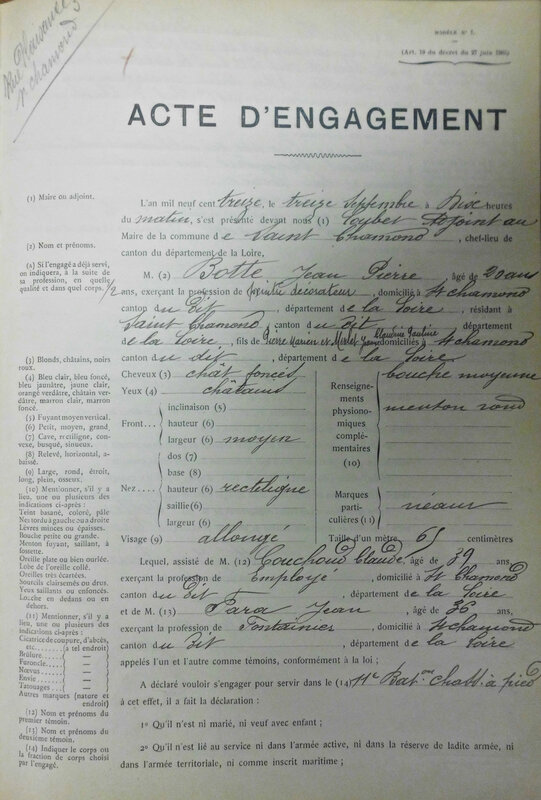 Rue Plaisance 3
St chamond
MODÈLE N° 1.
(Art. 19 du décret du 27 juin 1905)
ACTE D'ENGAGEMENT
(1) Maire ou adjoint.
(2) Nom et prénoms.
(2) Si l'engagé a déjà servi,
on indiquera, à la suite de
sa profession, en quelle
qualité et dans quel corps.
(3) Blonds, châtains, noirs
roux.
(4) Bleu clair, bleu foncé,
bleu jaunâtre, jaune clair,
orangé verdâtre, châtain ver-
dâtre, marron clair, marron
foncé.
(5) Fuyant moyen vertical.
(6) Petit, moyen, grand.
(7) Cave, rectiligne, con-
vexe, busqué, sinueux.
(8) Relevé, horizontal, a-
baissé.
(9) Large, rond, étroit,
long, plein, osseux.
(10) Mentionner, s'il y a
lieu, une ou plusieurs des
indications ci-après :
Teint basané, coloré, pâle
Nez tordu à gauche ou à droite
Lèvres minces ou épaisses.
Bouche petite ou grande.
Menton fuyant, saillant, à
fossette.
Oreille plate ou bien ourlée.
Lobe de l'oreille collé.
Oreilles très écartées.
Sourcils clairsemés ou drus.
Yeux saillants ou enfoncés.
Louche en dedans ou en
dehors.
(11) Mentionner, s'il y a
lieu, une ou plusieurs des
indications ci-après :
Cicatrice de coupure, d'abcès,
etc. à tel endroit)
Brûlure —
Furoncle —
Nœvus —
Envie —
Tatouages —
Autres marques (nature et
endroit)
(12) Nom et prénoms du
premier témoin.
(13) Nom et prénoms du
deuxième témoin.
(14) Indiquer le corps ou
la fraction de corps choisi
par l'engagé.
L'an mil neuf cent treize, le treize septembre à Dix heures
du matin, s'est présenté devant nous (1) Loybet Adjoint au
Maire de la commune de Saint Chamond, chef-lieu de
canton du département de la Loire,
M. (2) Botte Jean Pierre, âgé de 20 ans
1/2 ans, exerçant la profession de peintre décorateur, domicilié à St chamond
canton du Dit, département de la Loire, résidant à
Saint Chamond, canton du dit département
de la Loire, fils de Pierre Marien et Claudine Pauline domiciliés à St chamond
canton du dit, département de la Loire
Cheveux (3) chât foncés
Yeux (4) châtains
Front... inclinaison (5)
hauteur (6)
largeur (6) moyen
Nez... dos (7)
base (8)
hauteur (6) rectiligne
saillie (6)
largeur (6)
Visage (9) allongé
Renseigne-
ments
physiono-
miques
complé-
mentaires
(10)
bouche moyenne
menton rond
Marques
parti-
culières (11)
néant
Taille d'un mètre 65 centimètres
Lequel, assisté de M. (12) Couchoud Claude, âgé de 39 ans
exerçant la profession de Employé, domicilié à St Chamond
canton du Dit, département de la Loire
et de M. (13) Para Jean, âgé de 36 ans,
exerçant la profession de Fontainier, domicilié à St chamond
canton du Dit, département de la Loire
appelés l'un et l'autre comme témoins, conformément à la loi ;
A déclaré vouloir s'engager pour servir dans le (14) Bat.on Chass. à pied
à cet effet, il a fait la déclaration :
1° Qu'il n'est ni marié, ni veuf avec enfant ;
2° Qu'il n'est lié au service ni dans l'armée active, ni dans la réserve de ladite armée, ni
dans l'armée territoriale, ni comme inscrit maritime ;